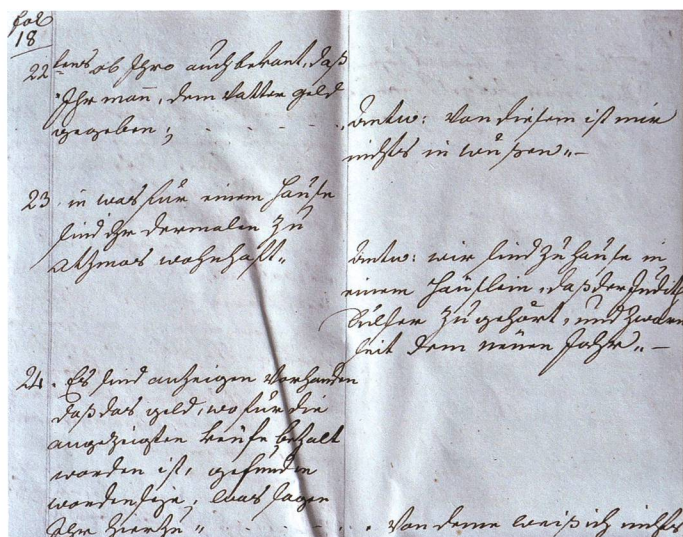 fol
18
22 tens ob Ihro auch bekant, daß
Ihr mañ, dem Vatter geld
gegeben;
Antw: Von diesem ist mir
nichts in wüßen „ —
23. in was für einem Hause
sind ihr dermalen zu
wohnhaft „
Antw: wir sind zu Hause in
einem Häuslein, daß der Judith
zugehört, und zwar
seit dem neüen Jahr „ —
24. Es sind anzeigen vorhanden
daß das geld, wo für die
angezeigten Keüfe bezalt
worden ist, gefunden
worden seye, was sagen
Ihr hierzu „
Von deme weiß ich nichts